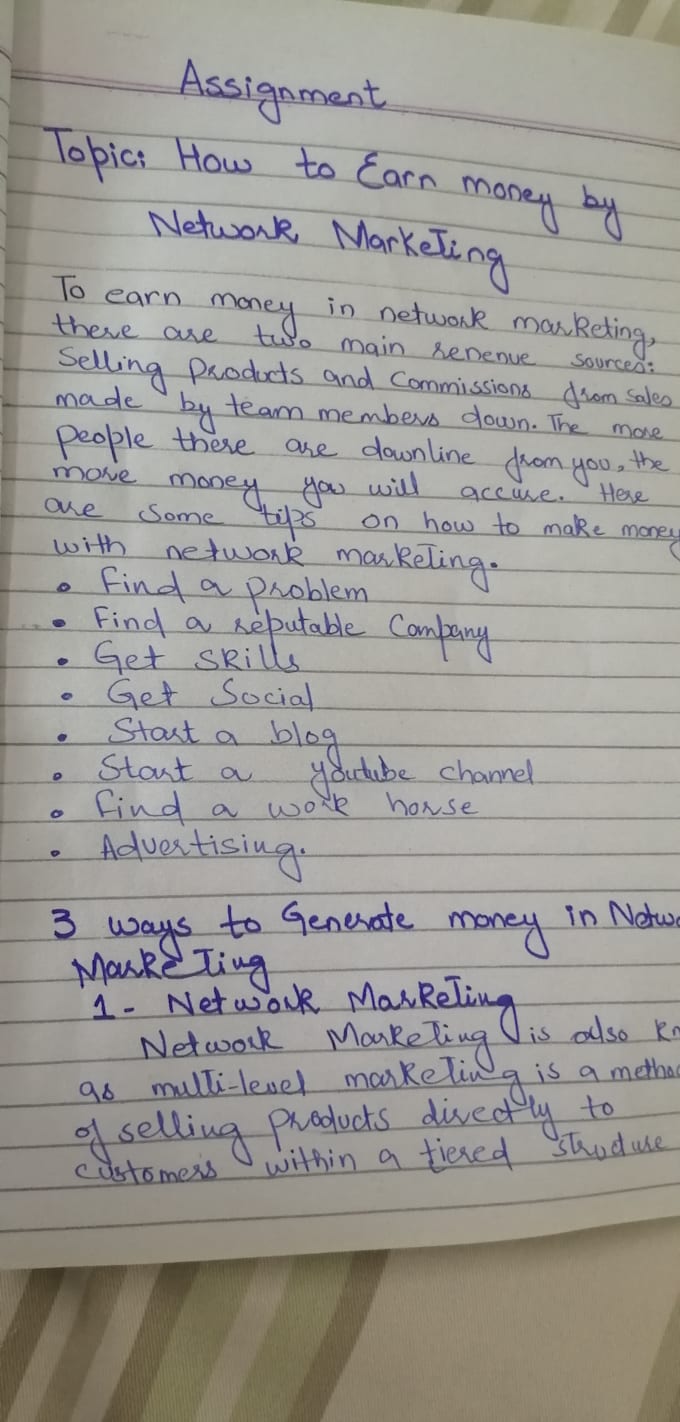 Assignment
Topic: How to Earn money by
Network Marketing
To earn money in network marketing,
there are two main renenue sources:
Selling Products and Commissions from sales
made by team members down. The more
people there are downline from you, the
more money you will accure. Here
are some tips on how to make money
with network marketing.
• Find a problem
• Find a reputable Company
• Get Skills
• Get Social
• Start a blog
• Start a youtube channel
• Find a work horse
• Advertising.
3 ways to Generate money in Netwo
Marketing
1- Network Marketing
Network Marketing is also Kn
as multi-level marketing is a metho
of selling products directly to
customers within a tiered structure